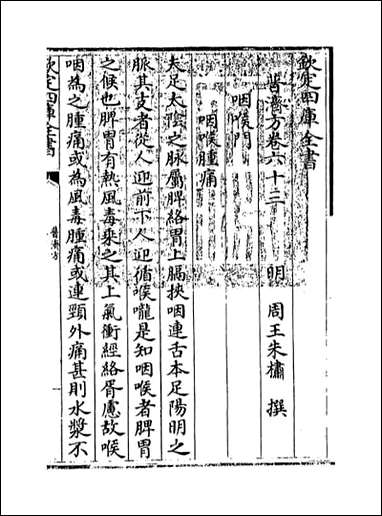 欽定四庫全書
普濟方卷六十三
明 周王朱橚 撰
咽喉門
咽喉腫痛
夫足太陰之脉屬脾絡胃上膈挾咽連舌本足陽明之
脉其支者從人迎前下人迎循喉嚨是知咽喉者脾胃
之候也脾胃有熱風毒乘之其上氣衝經絡胥慮故喉
咽為之腫痛或為風毒腫痛或連頸外痛甚則水漿不
欽定四庫全書
普濟方